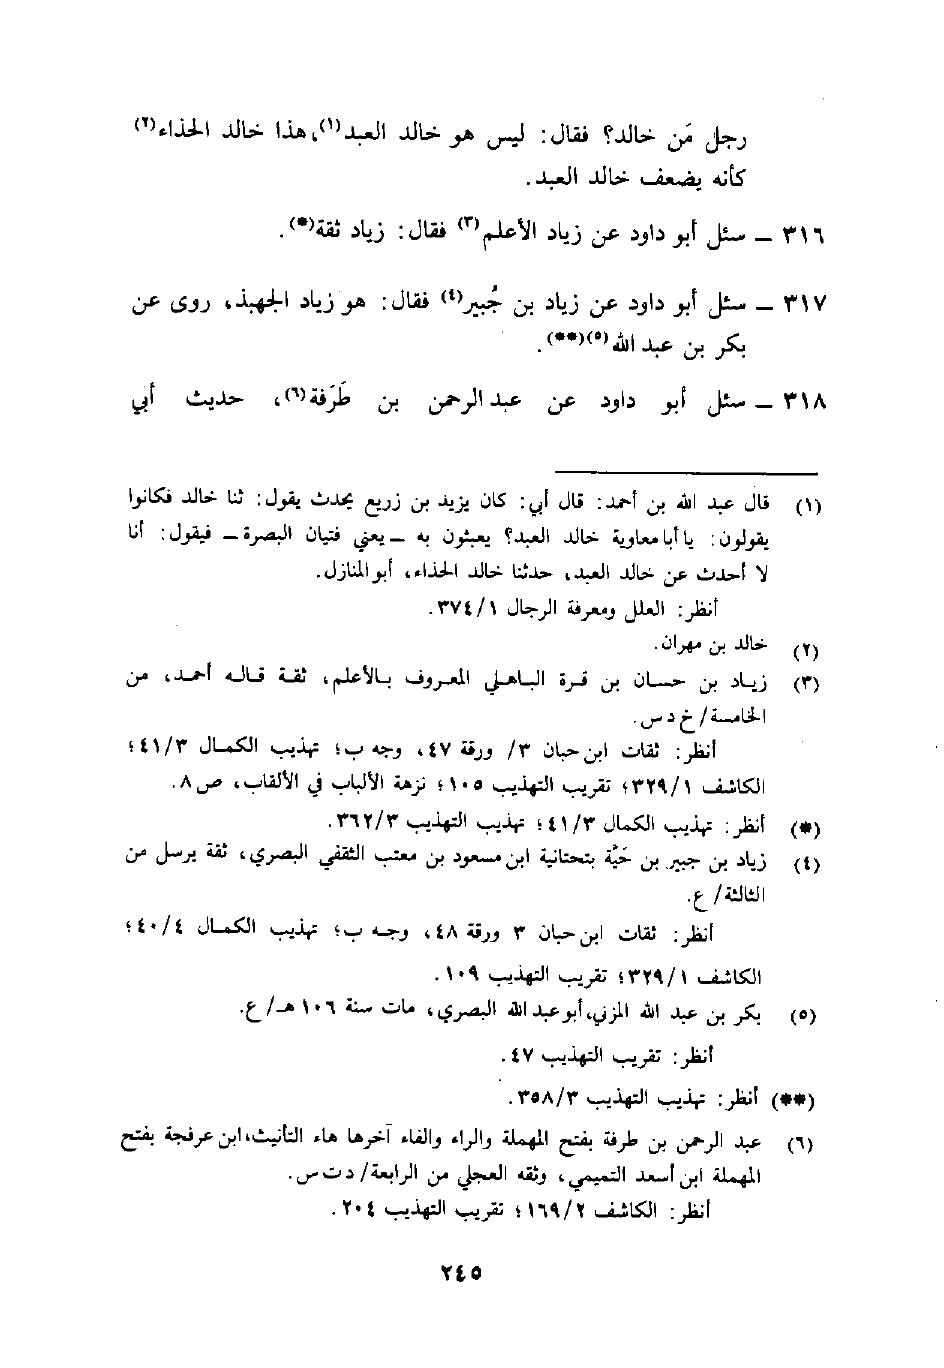 رجل مَن خالد؟ فقال: ليس هو خالد العبد(١)، هذا خالد الحذاء(٢)
كأنه يضعف خالد العبد.
٣١٦ – سئل أبو داود عن زياد الأعلم(٣) فقال: زياد ثقة(*).
٣١٧ – سئل أبو داود عن زياد بن جُبير(٤) فقال: هو زياد الجهبذ، روى عن
بكر بن عبد الله(٥)(**).
٣١٨ – سئل أبو داود عن عبد الرحمن بن طَرَفة(٦)، حديث أبي
(١) قال عبد الله بن أحمد: قال أبي: كان يزيد بن زريع يحدث يقول: ثنا خالد فكانوا
يقولون: يا أبا معاوية خالد العبد؟ يعبثون به – يعني فتيان البصرة – فيقول: أنا
لا أحدث عن خالد العبد، حدثنا خالد الحذاء، أبو المنازل.
أنظر: العلل ومعرفة الرجال ٣٧٤/١.
(٢) خالد بن مهران.
(٣) زياد بن حسان بن قرة الباهلي المعروف بالأعلم، ثقة قاله أحمد، من
الخامسة/ خ د س.
أنظر: ثقات ابن حبان ٣/ ورقة ٤٧، وجه ب؛ تهذيب الكمال ٤١/٣؛
الكاشف ٣٢٩/١؛ تقريب التهذيب ١٠٥؛ نزهة الألباب في الألقاب، ص ٨.
(*) أنظر: تهذيب الكمال ٤١/٣؛ تهذيب التهذيب ٣٦٢/٣.
(٤) زياد بن جبير بن حَيَّة بتحتانية ابن مسعود بن معتب الثقفي البصري، ثقة يرسل من
الثالثة/ ع.
أنظر: ثقات ابن حبان ٣ ورقة ٤٨، وجه ب؛ تهذيب الكمال ٤٠/٤؛
الكاشف ٣٢٩/١؛ تقريب التهذيب ١٠٩.
(٥) بكر بن عبد الله المزني، أبو عبد الله البصري، مات سنة ١٠٦ هـ/ ع.
أنظر: تقريب التهذيب ٤٧.
(**) أنظر: تهذيب التهذيب ٣٥٨/٣.
(٦) عبد الرحمن بن طرفة بفتح المهملة والراء والفاء آخرها هاء التأنيث، ابن عرفجة بفتح
المهملة ابن أسعد التميمي، وثقه العجلي من الرابعة/ د ت س.
أنظر: الكاشف ١٦٩/٢؛ تقريب التهذيب ٢٠٤.
٢٤٥